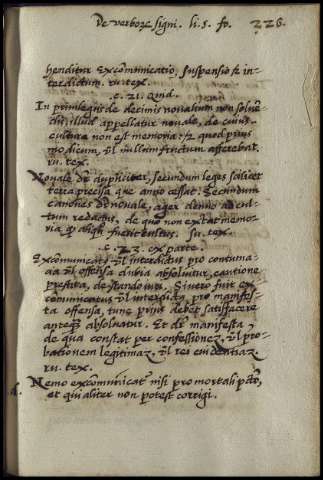 De verboꝝ signi. li. 5. fo. 226.
henditur Excommunicatio, suspensio & in-
terdictum. su. tex.
c. 21. quid.
In privilegiis de decimis novalium non solven-
dis, illud appellatur novale, de cuius
cultura non est memoria: & quod prius
modicum, vel nullum fructum afferebat.
su. tex.
Novale dr̄ dupliciter, secundum leges scilicet
terra precisa que anno cessat. Secundum
canones dr̄ novale, ager denuo ad cul-
tum redactus, de quo non extat memo-
ria q aliqñ fuerit cultus. su. tex.
c. 23. ex parte.
Excommunicatus vel interdictus pro contuma-
cia vel offensa dubia absolvitur, cautione
prestita, de stando iuri. Si vero fuit ex-
communicatus vel interdictus pro manifes-
ta offensa, tunc prius debet satisfacere
anteq̃ absolvatur. Et dr̄ manifesta
de qua constat per confessionem, vel pro-
bationem legitimam, vel rei evidentiam.
su. tex.
Nemo excommunicatur nisi pro mortali pctō,
et qui aliter non potest corrigi.